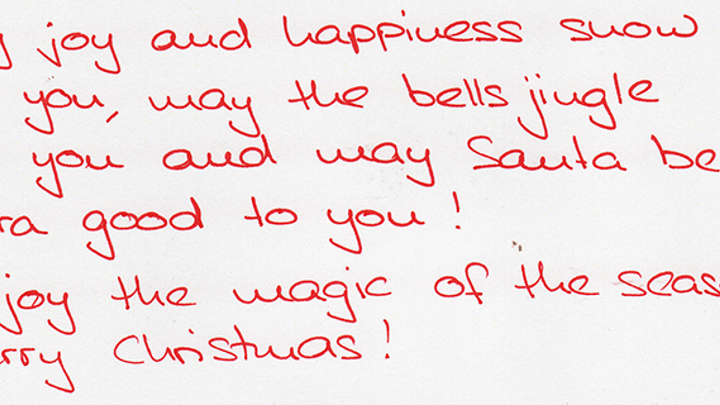 y joy and happiness snow
you, may the bells jingle
you and may Santa be
ra good to you!
joy the magic of the seas
rry Christmas!